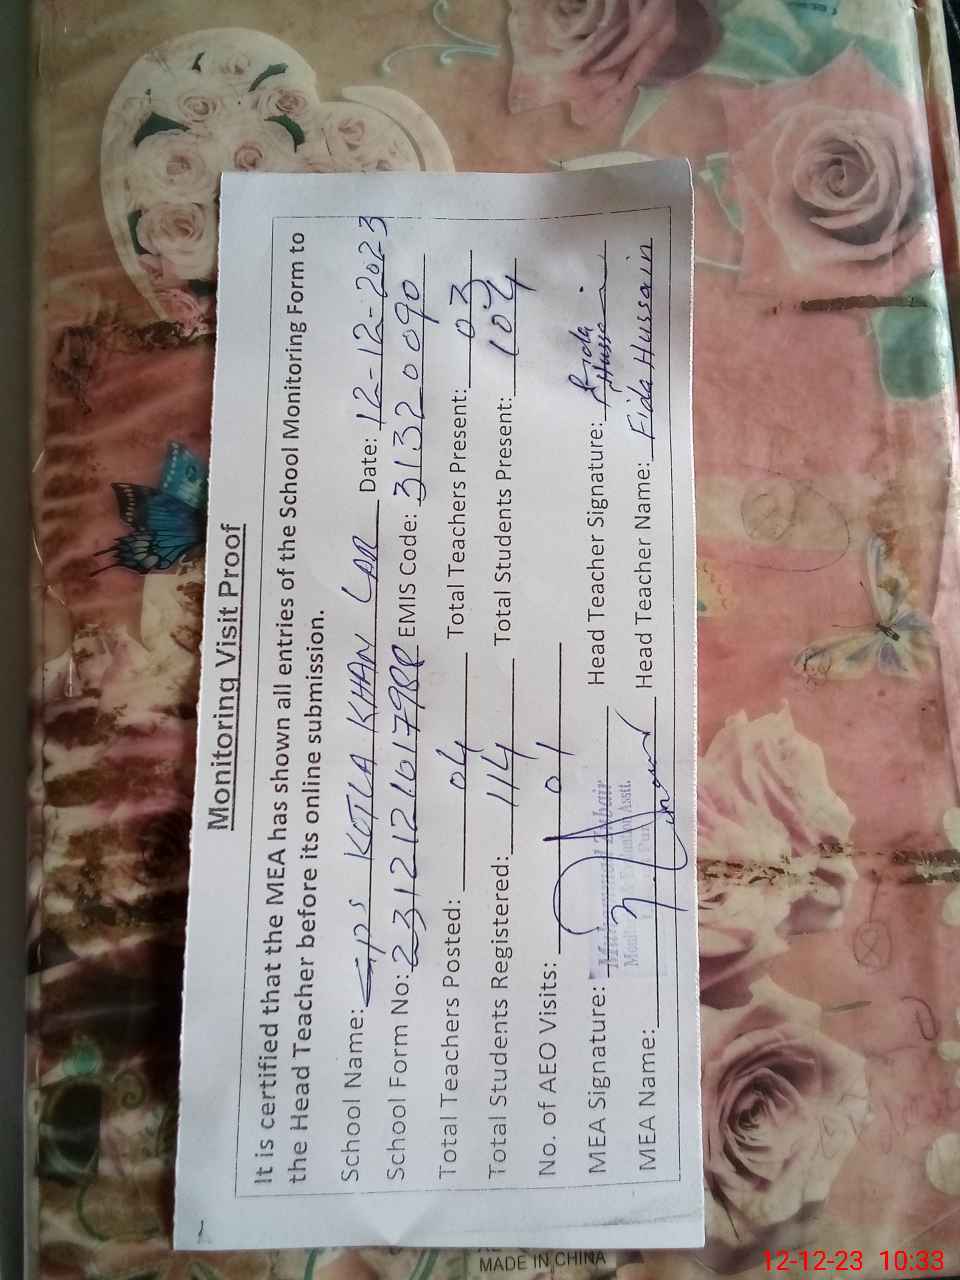 Monitoring Visit Proof
It is certified that the MEA has shown all entries of the School Monitoring Form to
the Head Teacher before its online submission.
School Name: GPS KOTLA KHAN LAR Date: 12-12-2023
School Form No: EMIS Code: 31320090
Total Teachers Posted: 04 Total Teachers Present: 03
Total Students Registered: 114 Total Students Present: 104
No. of AEO Visits: 01
MEA Signature: Head Teacher Signature: Fida Hussain
MEA Name: Head Teacher Name: Fida Hussain
Muhammad Zubair
MADE IN CHINA
12-12-23 10:33